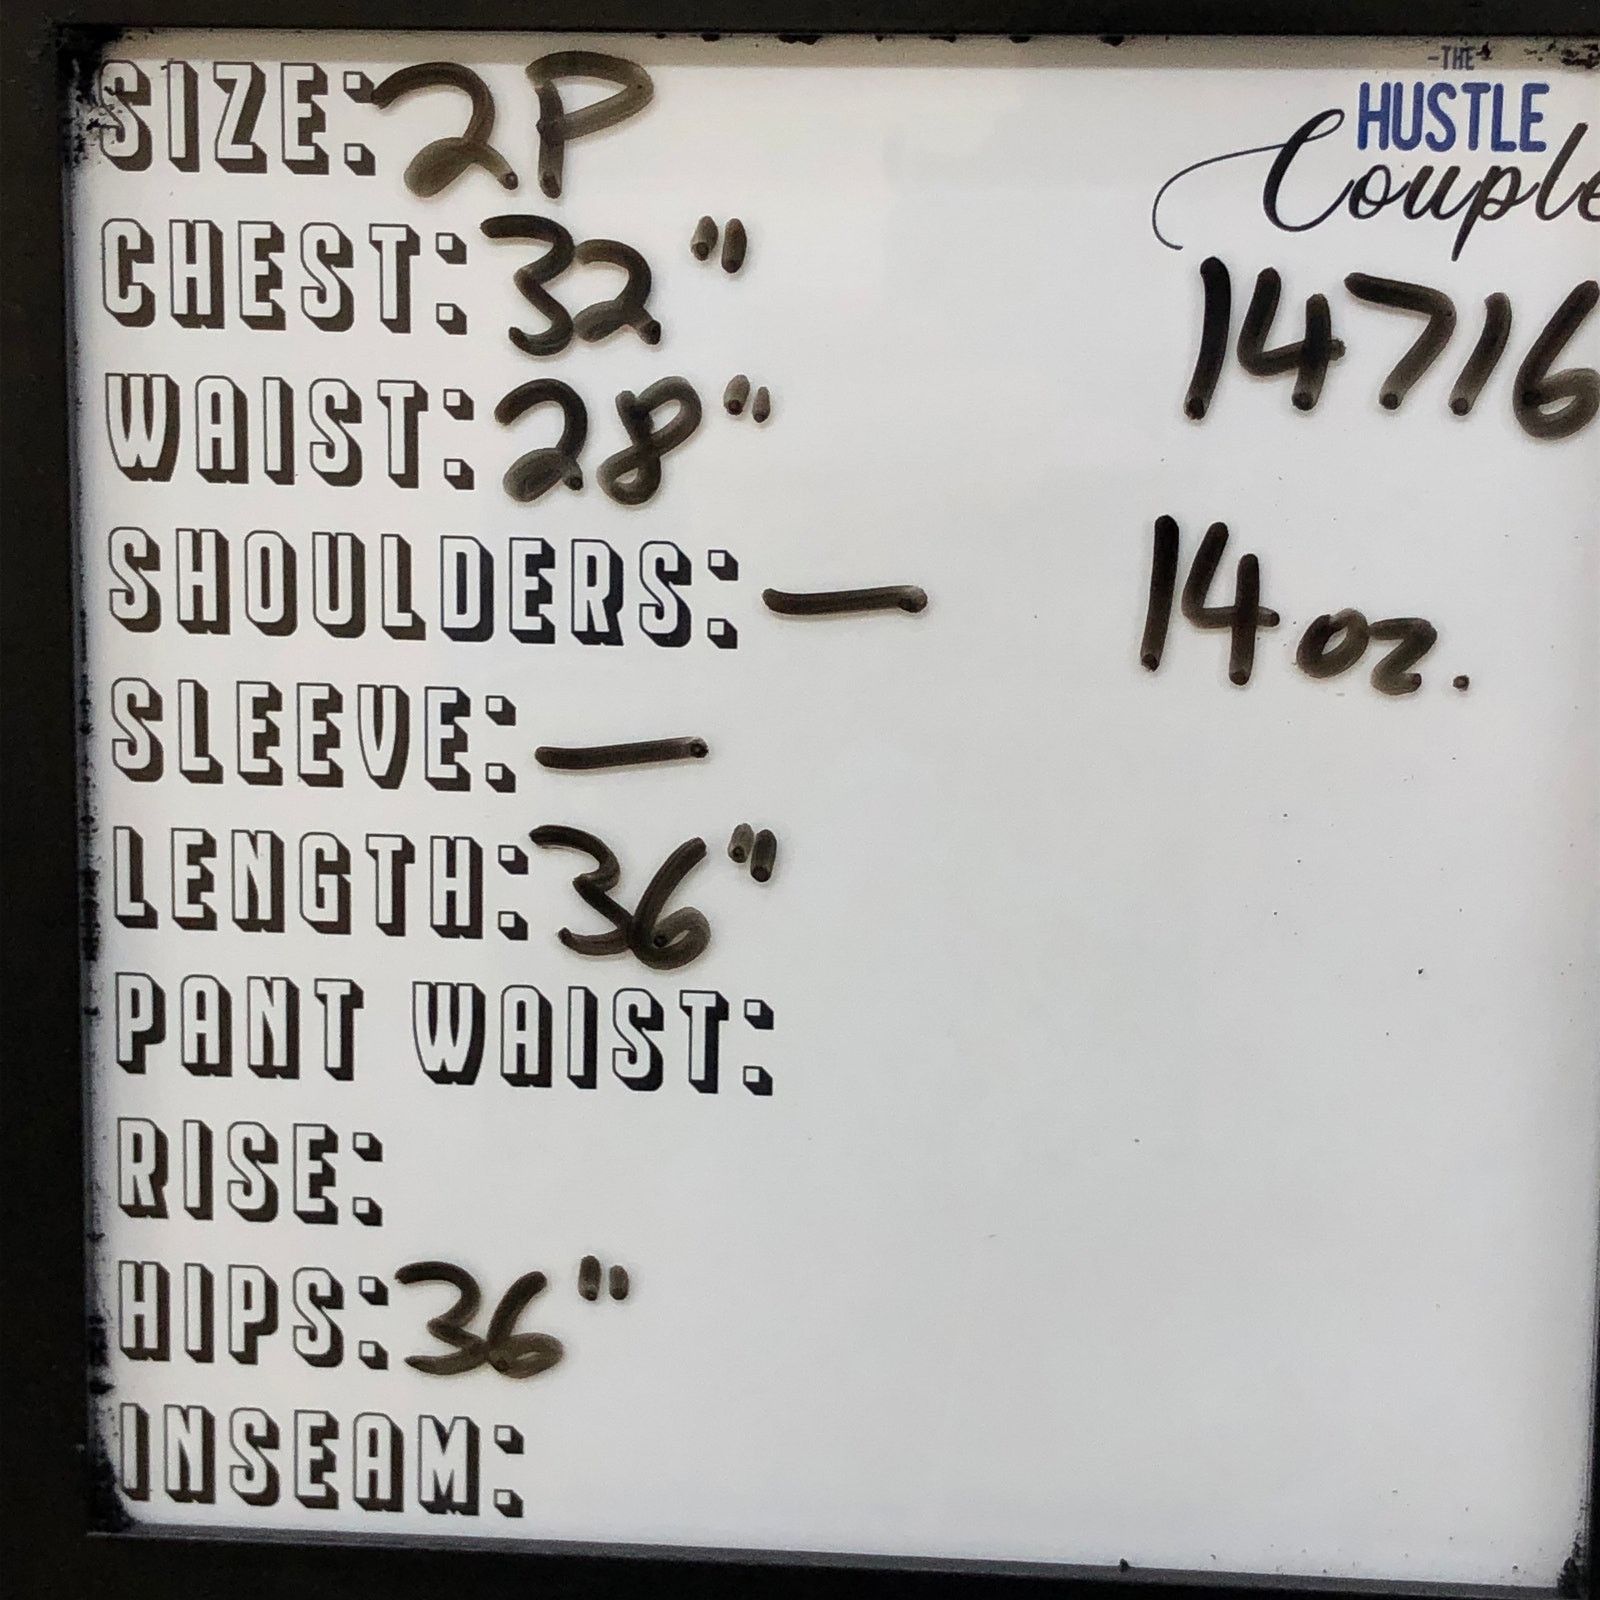 SIZE: 2P
CHEST: 32"
WAIST: 28"
SHOULDERS: —
SLEEVE: —
LENGTH: 36"
PANT WAIST:
RISE:
HIPS: 36"
INSEAM:
-THE
HUSTLE
Couple
14716
14 oz.